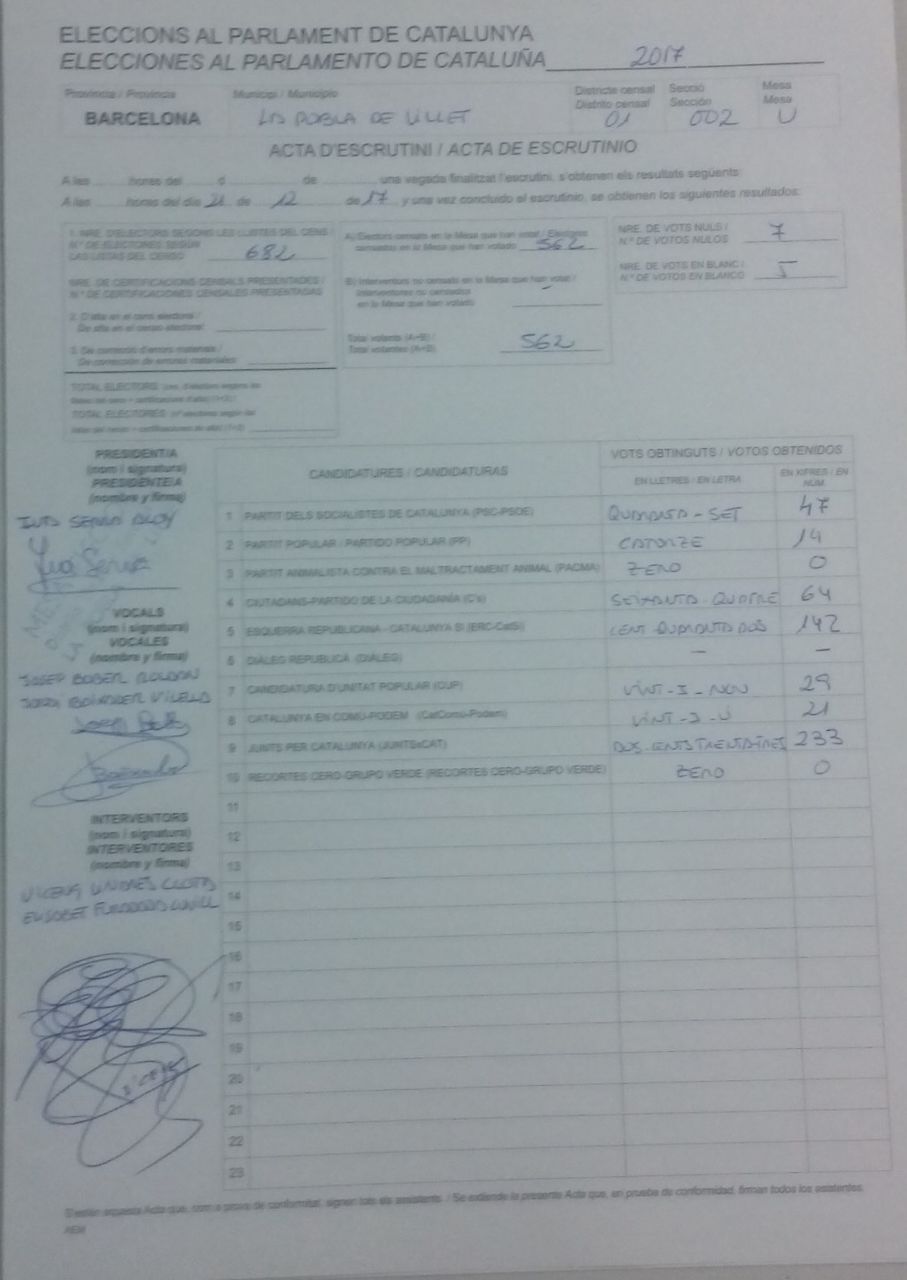 ELECCIONS AL PARLAMENT DE CATALUNYA
ELECCIONES AL PARLAMENTO DE CATALUÑA 2017
Província / Provincia Municipi / Municipio Districte censal Secció Mesa
Distrito censal Sección Mesa
BARCELONA LA POBLA DE LILLET 01 002 U
ACTA D'ESCRUTINI / ACTA DE ESCRUTINIO
A les ........ hores del ........ d ........ de ........ una vegada finalitzat l'escrutini, s'obtenen els resultats següents:
A las ........ horas del día 21 de 12 de 17 y una vez concluido el escrutinio, se obtienen los siguientes resultados:
1. NRE. D'ELECTORS SEGONS LES LLISTES DEL CENS /
N.º DE ELECTORES SEGÚN
LAS LISTAS DEL CENSO 682
NRE. DE CERTIFICACIONS CENSALS PRESENTADES /
N.º DE CERTIFICACIONES CENSALES PRESENTADAS
2. D'alta en el cens electoral /
De alta en el censo electoral
3. De correcció d'errors materials /
De corrección de errores materiales
TOTAL ELECTORS
TOTAL ELECTORES
A) Electors censats en la Mesa que han votat / Electores
censados en la Mesa que han votado 562
B) Interventors no censats en la Mesa que han votat /
Interventores no censados
en la Mesa que han votado -
Total votants (A+B) /
Total votantes (A+B) 562
NRE. DE VOTS NULS /
N.º DE VOTOS NULOS 7
NRE. DE VOTS EN BLANC /
N.º DE VOTOS EN BLANCO 5
PRESIDENT/A
(nom i signatura)
PRESIDENTE/A
(nombre y firma)
VOCALS
(nom i signatura)
VOCALES
(nombre y firma)
INTERVENTORS
(nom i signatura)
INTERVENTORES
(nombre y firma)
CANDIDATURES / CANDIDATURAS VOTS OBTINGUTS / VOTOS OBTENIDOS
EN LLETRES / EN LETRA EN XIFRES / EN NÚM.
1 PARTIT DELS SOCIALISTES DE CATALUNYA (PSC-PSOE) QUARANTA-SET 47
2 PARTIT POPULAR / PARTIDO POPULAR (PP) CATORZE 14
3 PARTIT ANIMALISTA CONTRA EL MALTRACTAMENT ANIMAL (PACMA) ZERO 0
4 CIUTADANS-PARTIDO DE LA CIUDADANÍA (C's) SEIXANTA-QUATRE 64
5 ESQUERRA REPUBLICANA - CATALUNYA SÍ (ERC-CatSí) CENT QUARANTA DOS 142
6 DIÀLEG REPUBLICÀ (DIÀLEG) — —
7 CANDIDATURA D'UNITAT POPULAR (CUP) VINT-I-NOU 29
8 CATALUNYA EN COMÚ-PODEM (CatComú-Podem) VINT-I-U 21
9 JUNTS PER CATALUNYA (JUNTSxCAT) DOS-CENTS TRENTA TRES 233
10 RECORTES CERO-GRUPO VERDE (RECORTES CERO-GRUPO VERDE) ZERO 0
11
12
13
14
15
16
17
18
19
20
21
22
23
S'estén aquesta Acta que, com a prova de conformitat, signen tots els assistents. / Se extiende la presente Acta que, en prueba de conformidad, firman todos los asistentes.